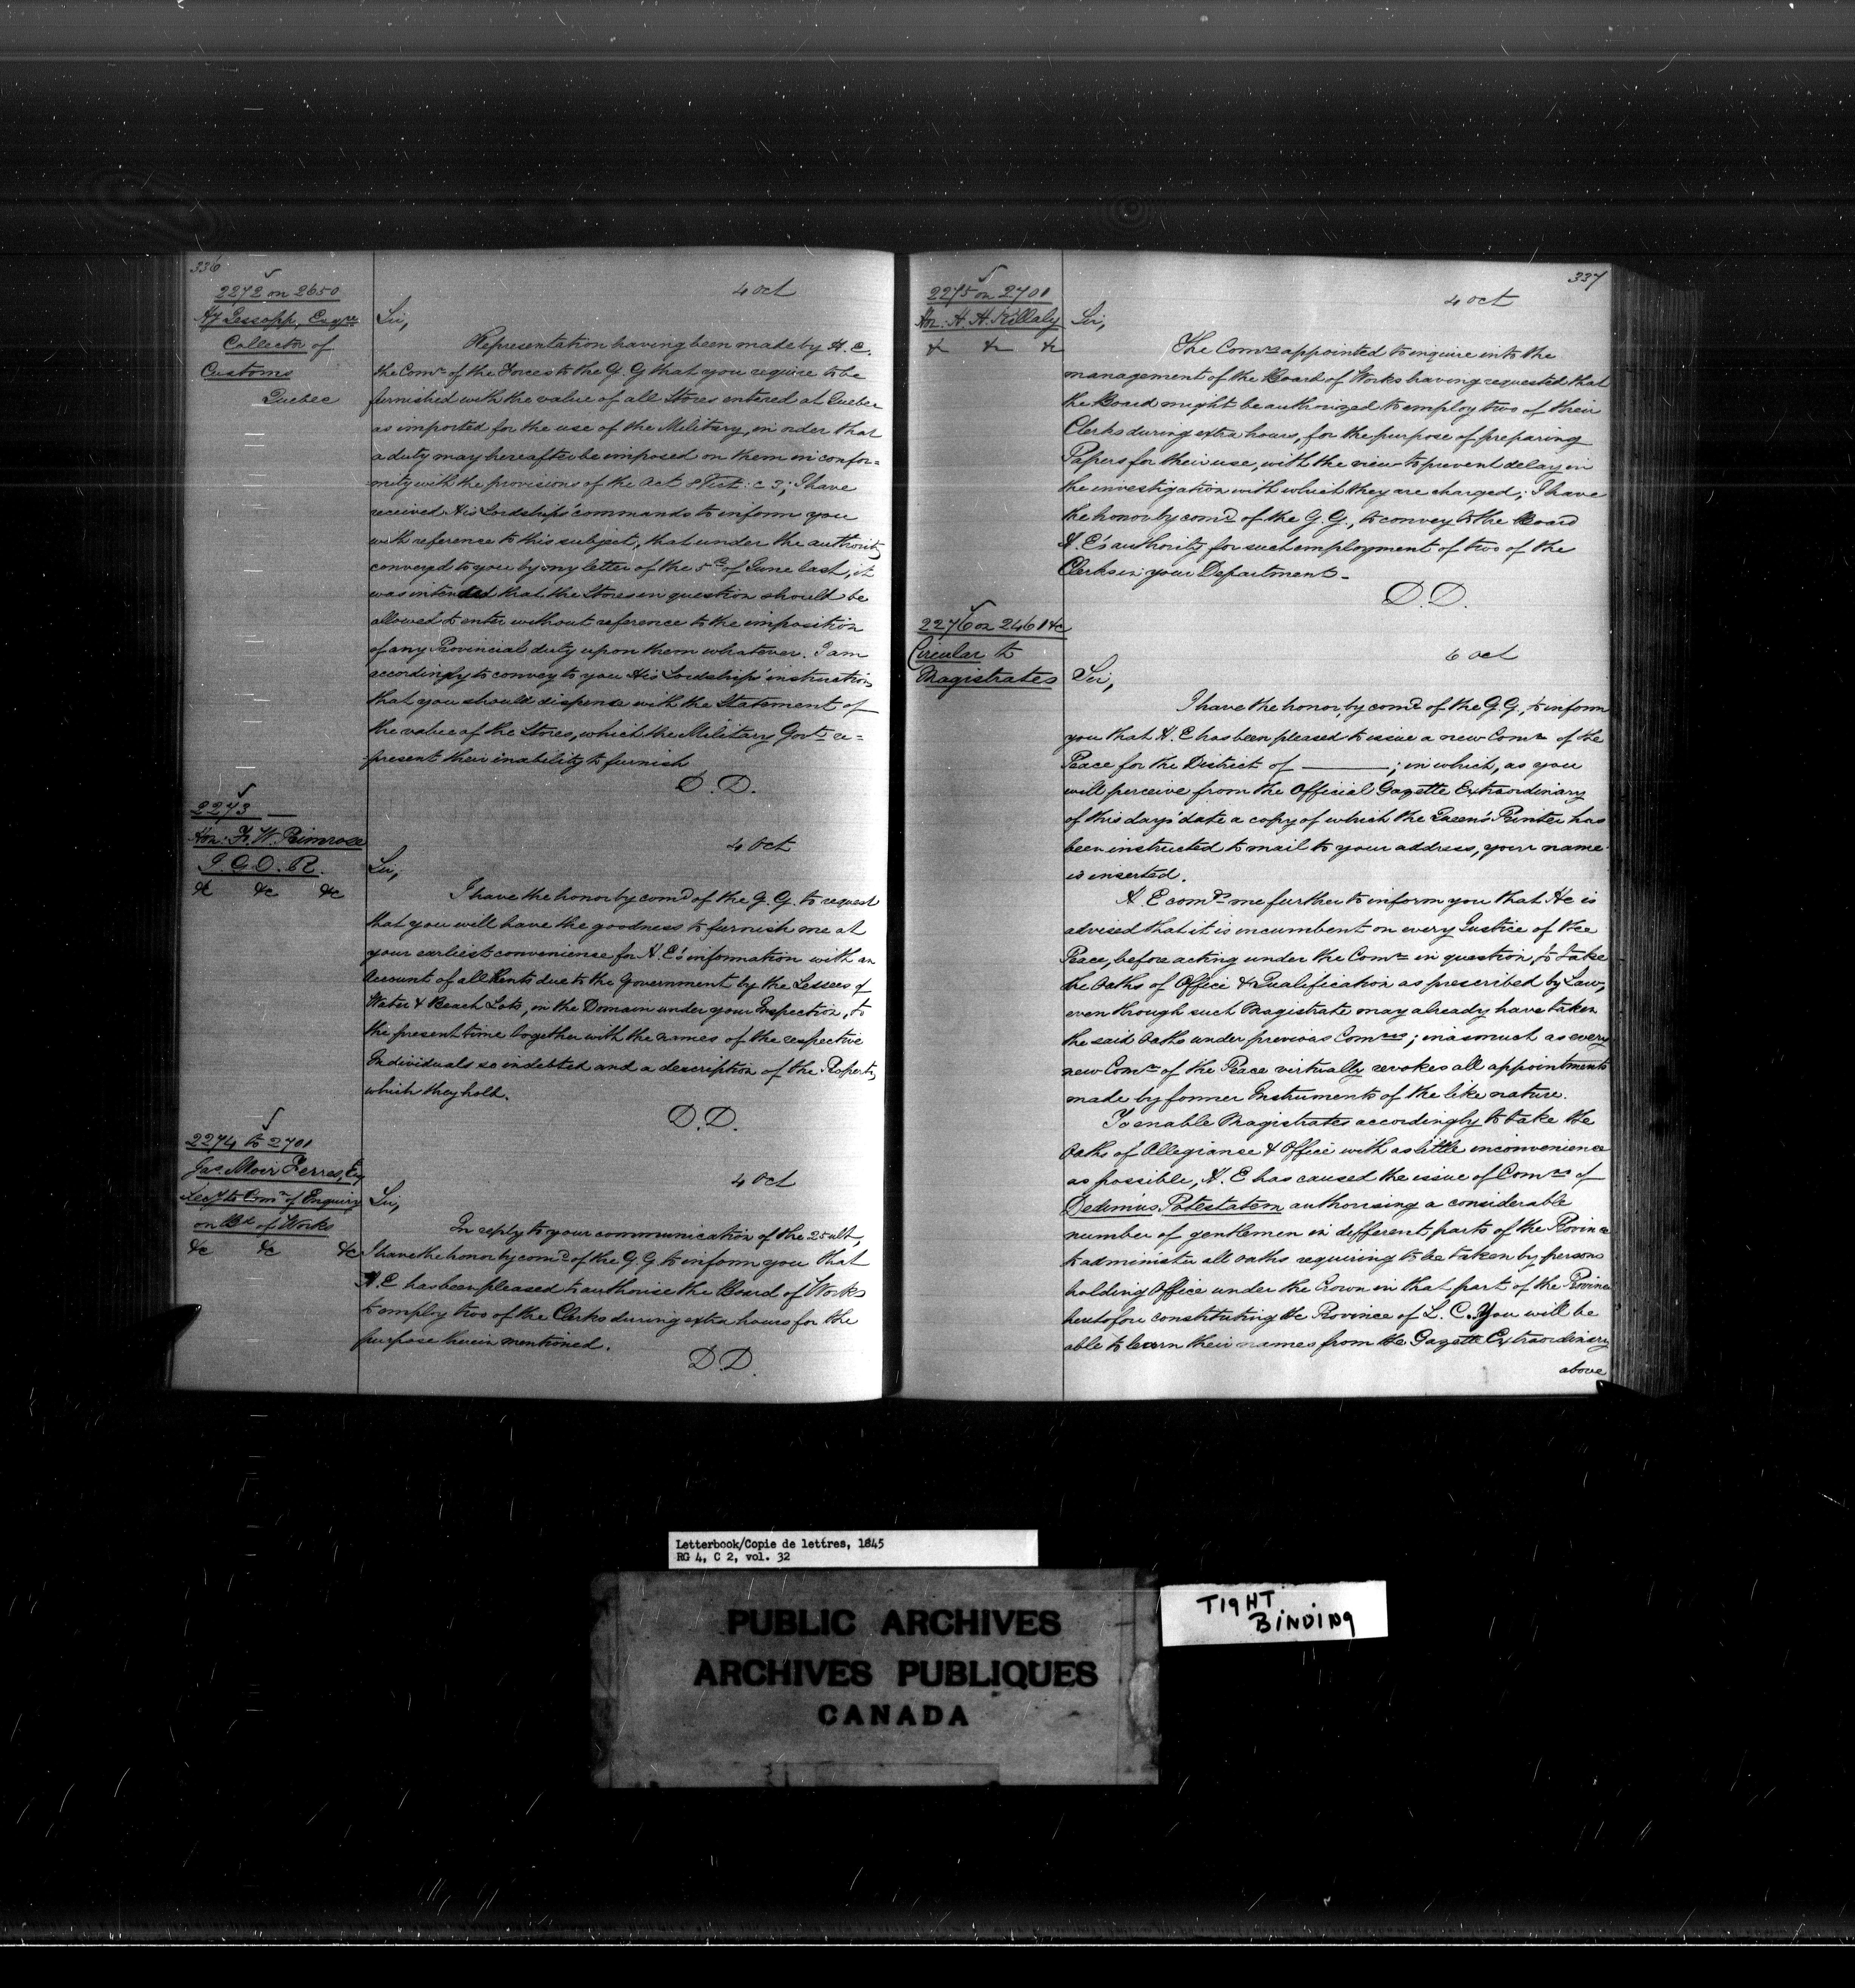 336
2272 on 2650
HJ Jessopp, Esqre
Collectr of
Customs
Quebec
4 Oct
Sir,
Representation having been made by H. E.
the Comr of the Forces to the G. G that you require to be
furnished with the value of all Stores entered at Quebec
as imported for the use of the Military, in order that
a duty may hereafter be imposed on them in confor=
mity with the provisions of the Act 8 Vict: c 3; I have
received His Lordship's commands to inform you
with reference to this subject, that under the authority
conveyed to you by my letter of the 5th of June last, it
was intended that the Stores in question should be
allowed to enter without reference to the imposition
of any Provincial duty upon them whatever. I am
accordingly to convey to you His Lordship's instructions
that you should dispense with the Statement of
the value of the Stores, which the Military Govt re=
present their inability to furnish
D. D.
2273
Hon: F. W. Primrose
I. G. O. R.
&c &c &c
4 Oct
Sir,
I have the honor by comd of the G. G. to request
that you will have the goodness to furnish me at
your earliest convenience for H. E's information with an
Account of all Rents due to the Government by the Lessees of
Water & Beach Lots, in the Domain under your Inspection, to
the present time together with the names of the respective
Individuals so indebted and a description of the Property
which they hold.
D. D.
2274 to 2701
Jas. Moir Ferres, Esq
Secy to Comn of Enquiry
on Bd of Works
&c &c &c
4 Oct
Sir,
In reply to your communication of the 25 ult,
I have the honor by comd of the G. G. to inform you that
H. E has been pleased to authorise the Board of Works
to employ two of the Clerks during extra hours for the
purpose therein mentioned.
D. D.
337
2275 on 2701
Hon. H. H. Killaly
&c &c &c
4 Oct
Sir,
The Comrs appointed to inquire into the
management of the Board of Works having requested that
the Board might be authorized to employ two of their
Clerks during extra hours, for the purpose of preparing
Papers for their use, with the view to prevent delay in
the investigation with which they are charged; I have
the honor by comd of the G. G., to convey to the Board
H. E's authority for such employment of two of the
Clerks in your Department.
D. D.
2276 on 2461 &c
Circular to
Magistrates
6 Oct
Sir,
I have the honor, by comd of the G. G., to inform
you that H. E has been pleased to issue a new Comn of the
Peace for the District of ———; in which, as you
will perceive from the Official Gazette Extraordinary
of this day's date a copy of which the Queen's Printer has
been instructed to mail to your address, your name
is inserted.
H. E comds me further to inform you that He is
advised that it is incumbent on every Justice of the
Peace, before acting under the Comn in question, to take
the Oaths of Office & Qualification as prescribed by Law,
even though such Magistrate may already have taken
the said Oaths under previous Comns; inasmuch as every
new Comn of the Peace virtually revokes all appointments
made by former Instruments of the like nature.
To enable Magistrates accordingly to take the
Oaths of Allegiance & Office with as little inconvenience
as possible, H. E has caused the issue of Comns of
Dedimus Potestatem authorising a considerable
number of gentlemen in different parts of the Province
to administer all oaths requiring to be taken by persons
holding Office under the Crown in that part of the Province
heretofore constituting the Province of L. C. You will be
able to learn their names from the Gazette Extraordinary
above
Letterbook/Copie de lettres, 1845
RG 4, C 2, vol. 32
PUBLIC ARCHIVES
ARCHIVES PUBLIQUES
CANADA
TIGHT
BINDING